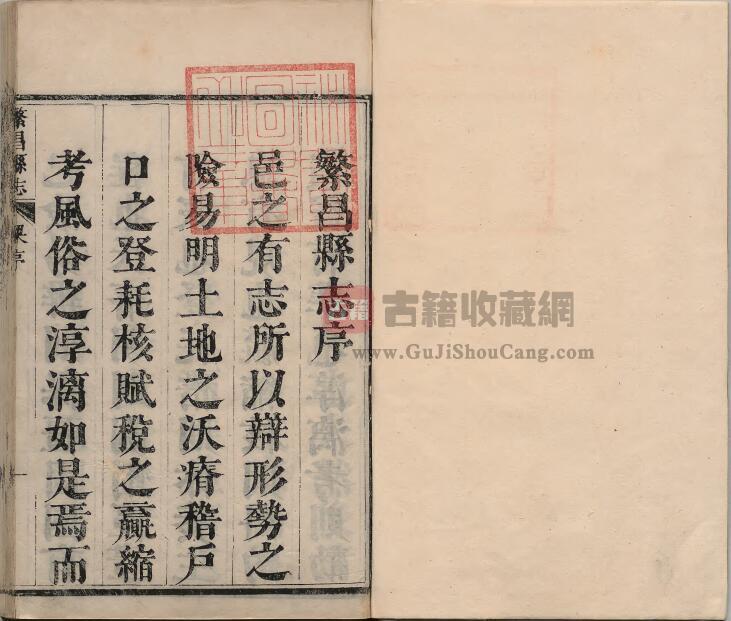 繁昌縣志序
邑之有志所以辯形勢之
險易明土地之沃瘠稽戶
口之登耗核賦稅之贏縮
考風俗之淳漓如是焉而
繁昌縣志
古籍收藏網
www.GuJiShouCang.com